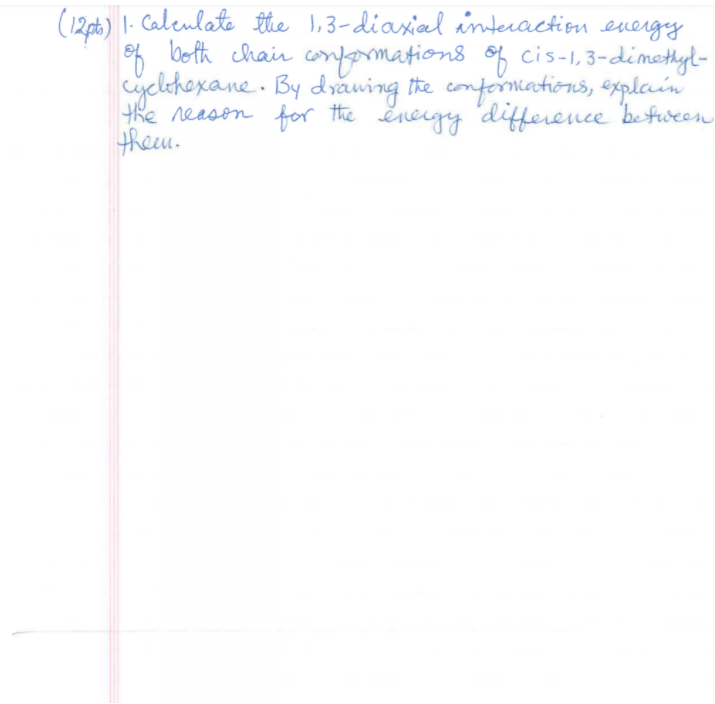 (12pts) 1. Calculate the 1,3-diaxial interaction energy
of both chair conformations of cis-1,3-dimethyl-
cyclohexane. By drawing the conformations, explain
the reason for the energy difference between
them.